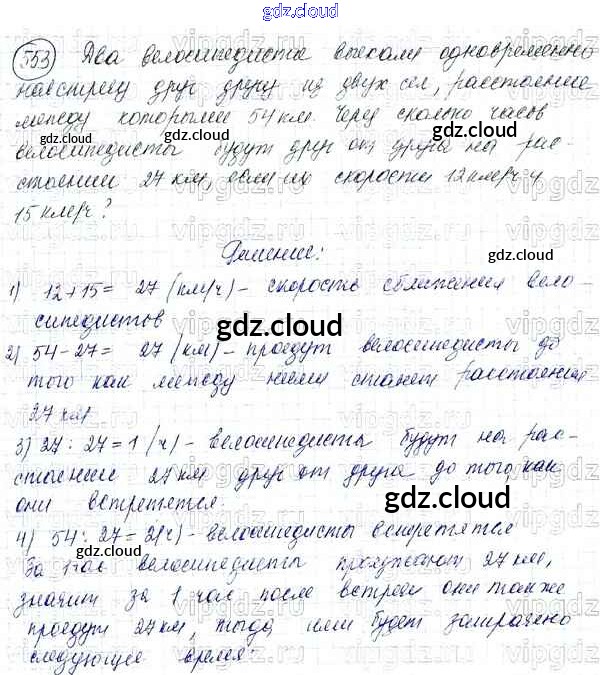 gdz.cloud
553 Два велосипедиста выехали одновременно
gdz.cloud
навстречу друг другу из двух сел, расстояние
между которыми 54 км. Через сколько часов
gdz.cloud
велосипедисты будут друг от друга на рас-
стоянии 27 км, если их скорости 12 км/ч и
15 км/ч?
Решение:
gdz.cloud
1) 12+15= 27 (км/ч) – скорость сближения вело-
сипедистов
gdz.cloud
2) 54-27= 27 (км) – проедут велосипедисты до
того как между ними станет расстояние
27 км
3) 27 : 27 = 1 (ч) – велосипедисты будут на рас-
стоянии 27 км друг от друга до того, как
они встретятся.
gdz.cloud
4) 54 : 27 = 2(ч) – велосипедисты встретятся
За 1 час велосипедисты проезжают 27 км,
значит за 1 час после встречи они также
проедут 27 км, тогда ими будет затрачено
следующее время:
gdz.cloud